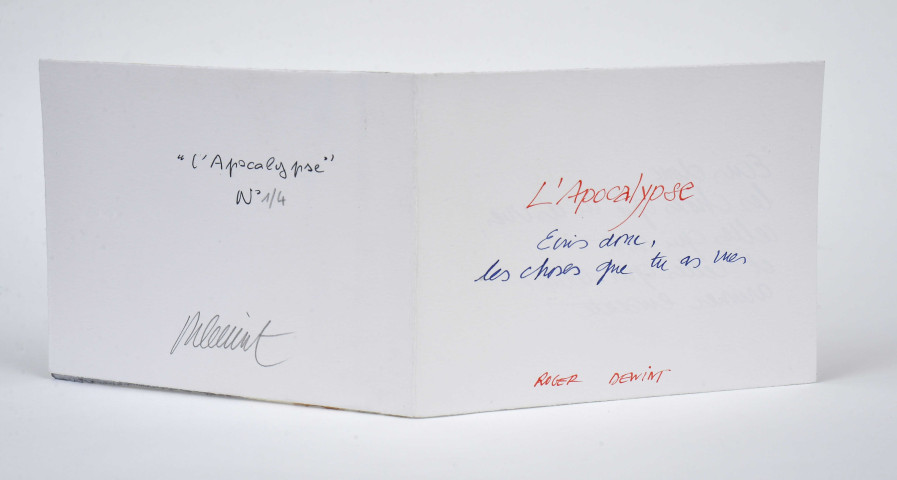 "L'Apocalypse"
N° 1/4
Dewint
L'Apocalypse
Ecris donc,
les choses que tu as vues
ROGER DEWINT